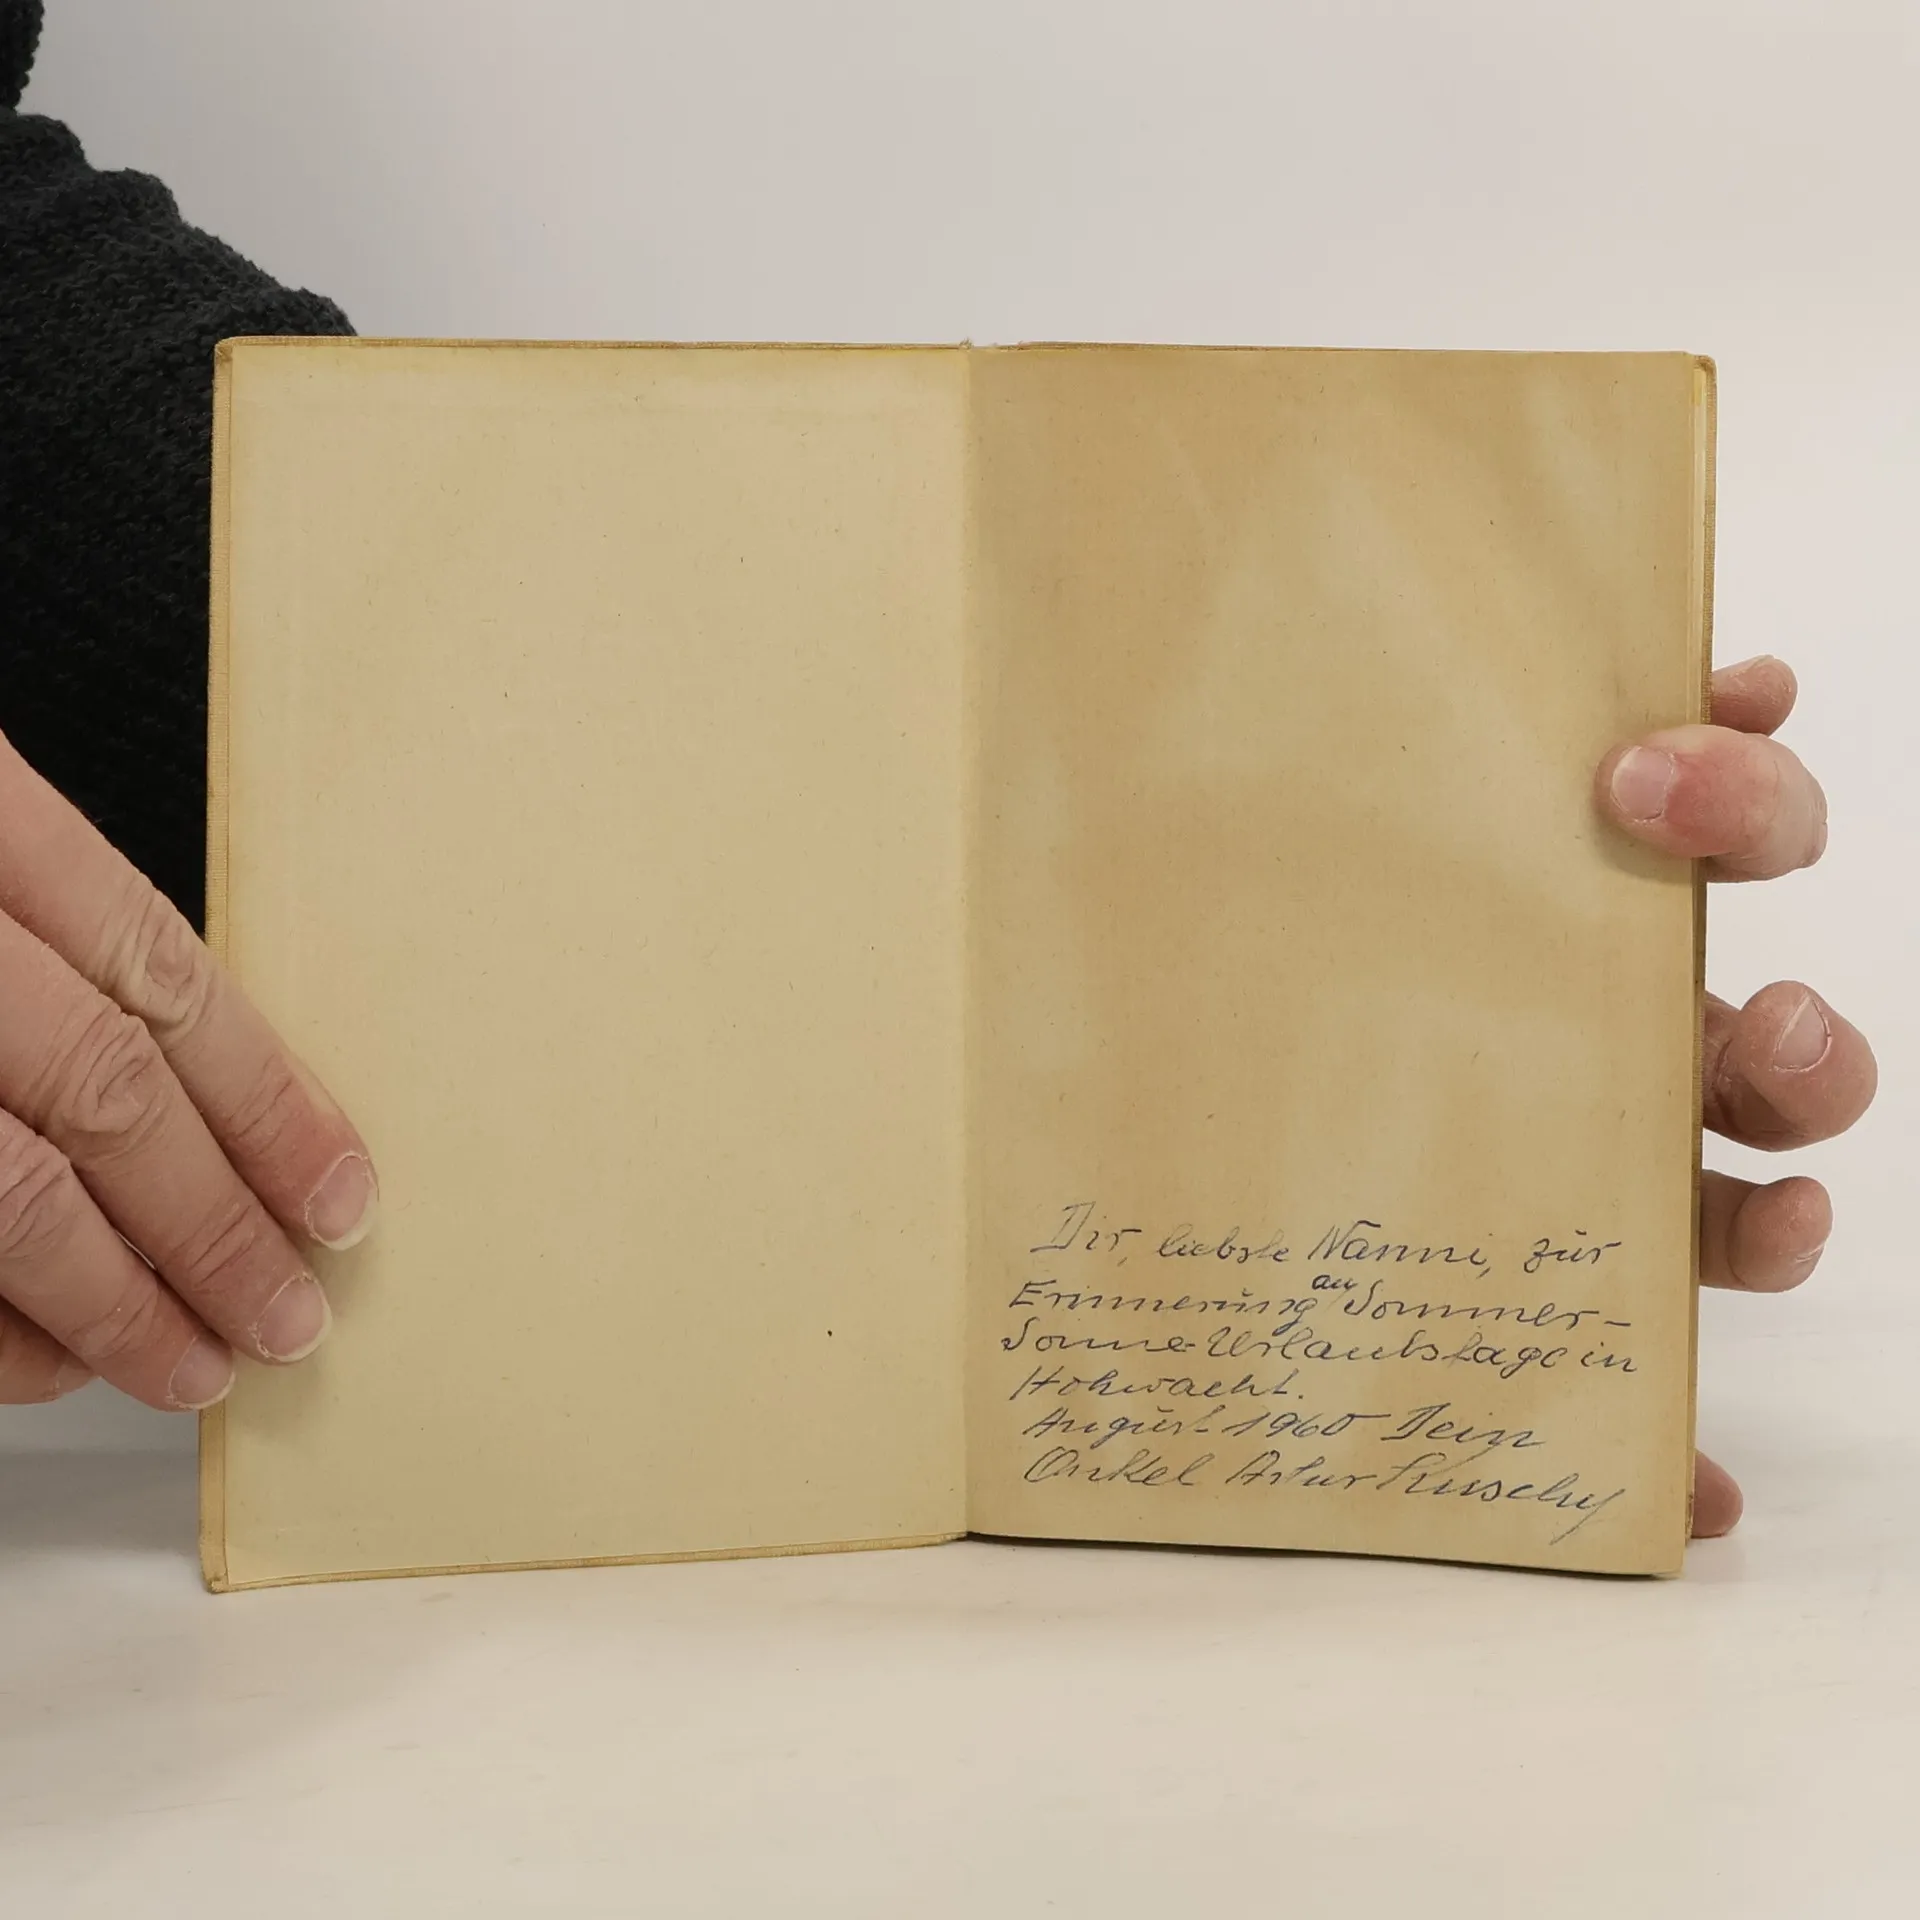 Dir, liebste Nanni, zur
Erinnerung an Sommer-
Sonne-Urlaubstage in
Hohwacht.
August 1960 Dein
Onkel Artur